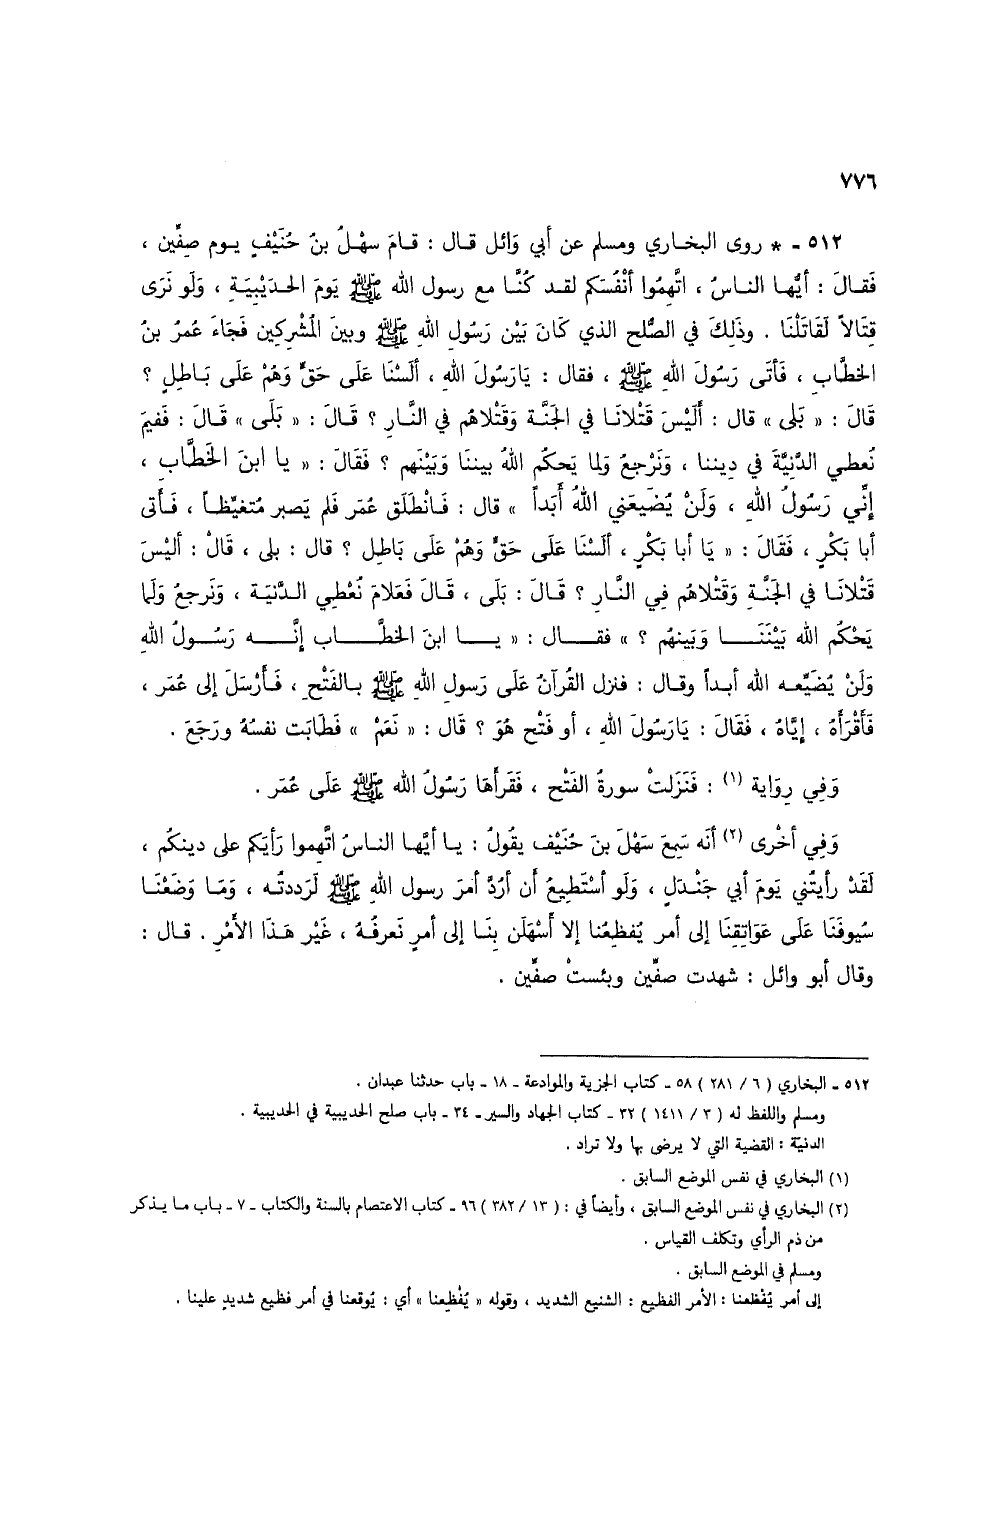 ٧٧٦
٥١٢ - * روى البخـاري ومسلم عن أبي وَائل قـال : قـامَ سهْـلُ بنُ حُنَيْفٍ يـوم صِفِّين ،
فَقـالَ : أيُّهـا النـاسُ ، اتَّهِمُوا أَنْفُسَكم لقـد كُنَّـا مع رسول الله ﷺ يَومَ الحـدَيْبِيَـةِ ، وَلَو نَرَى
قِتَالاً لَقَاتَلْنَا . وذَلِكَ في الصُّلح الذي كَانَ بَيْن رَسُولِ اللهِ ﷺ وبينَ الْمُشْرِكِين فَجَاءَ عُمرُ بنُ
الخطَّابِ ، فَأَتَى رَسُولَ اللهِ ﷺ ، فقال : يَارَسُولَ اللهِ ، أَلَسْنَا عَلَى حَقٍّ وَهُمْ عَلَى بَـاطِلٍ ؟
قَالَ : « بَلَى » قال : أَلَيْسَ قَتْلانَـا في الجَنَّـة وَقَتْلاهُم في النَّـارِ ؟ قَـالَ : « بَلَى » قَـالَ : فَفِيمَ
نُعطي الدَّنِيَّةَ في دِيننا ، وَنَرْجِعُ وَلما يَحكُم اللهُ بيننَا وَبَيْنَهم ؟ فَقَالَ : « يا ابنَ الخَطَّابِ ،
إنِّي رَسُولُ اللهِ ، وَلَنْ يُضَيِّعَني اللهُ أَبَداً » قال : فَـانْطَلَق عُمَر فلم يَصبر مُتغَيِّظـاً ، فَـأتى
أبا بَكْرٍ ، فَقَالَ : « يَا أبا بَكْرٍ ، أَلَسْنَا عَلَى حَقٍّ وَهُمْ عَلَى بَاطِلٍ ؟ قال : بلى ، قَالَ : أَلَيْسَ
قَتْلانَـا في الجَنَّـةِ وَقَتْلاهُم فِي النَّـارِ ؟ قَـالَ : بَلَى ، قَـالَ فَعَلامَ نُعْطِي الـدَّنيَـة ، وَنَرجعُ وَلَما
يَحْكُم الله بَيْنَنَـــا وَبَينهُم ؟ » فقـــال : « يـــا ابنَ الخطَّـــاب إنَّـــه رَسُـــولُ اللهِ
وَلَنْ يُضَيِّعـه الله أبـداً وقـال : فنزل القُرآنُ عَلَى رَسولِ اللهِ ﷺ بـالفَتْحِ ، فَـأَرْسَلَ إلى عُمَر ،
فَأَقْرَأَهُ ، إيَّاهُ ، فَقَالَ : يَارَسُولَ اللهِ ، أو فَتْح هُوَ ؟ قال : « نَعَمْ » فَطَابَت نفسُهُ ورَجَعَ .
وَفِي رِوَاية (١) : فَنَزَلَتْ سورةُ الفَتْح ، فَقَرأَهَا رَسُولُ الله ﷺ عَلَى عُمَر .
وَفِي أخْرى (٢) أنّه سَمِعَ سَهْلَ بنَ حُنَيْف يقُولُ : يـا أيُّهـا النـاسُ اتَّهموا رَأيَكم على دينكُم ،
لَقَدْ رأيتُني يَومَ أبي جَنْـدَلٍ ، وَلَو أسْتَطِيعُ أن أرُدَّ أمرَ رسول اللهِ ﷺ لَرَددتُـه ، وَمَـا وَضَعْنَـا
سُيوفَنَا عَلَى عَوَاتِقِنَا إلى أمر يُفظِعُنا إلا أسْهَلن بِنَـا إلى أمرٍ نَعرفُـهُ ، غَيْر هَـذَا الأمْرِ . قـال :
وقال أبو وائل : شهدت صفِّين وبئستْ صفِّين .
٥١٢ - البخاري ( ٦ / ٢٨١ ) ٥٨ - كتاب الجزية والموادعة - ١٨ - باب حدثنا عبدان .
ومسلم واللفظ له ( ٣ / ١٤١١ ) ٣٢ - كتاب الجهاد والسير - ٣٤ - باب صلح الحديبية في الحديبية .
الدنيّة : القضية التي لا يرضى بها ولا تراد .
(١) البخاري في نفس الموضع السابق .
(٢) البخاري في نفس الموضع السابق ، وأيضاً في : ( ١٣ / ٣٨٢ ) ٩٦ - كتاب الاعتصام بالسنة والكتاب - ٧ - بـاب مـا يـذكر
من ذم الرأي وتكلف القياس .
ومسلم في الموضع السابق .
إلى أمر يُفْظعنا : الأمر الفظيع : الشنيع الشديد ، وقوله « يُفْظِعنا » أي : يُوقعنا في أمر فظيع شديدٍ علينا .